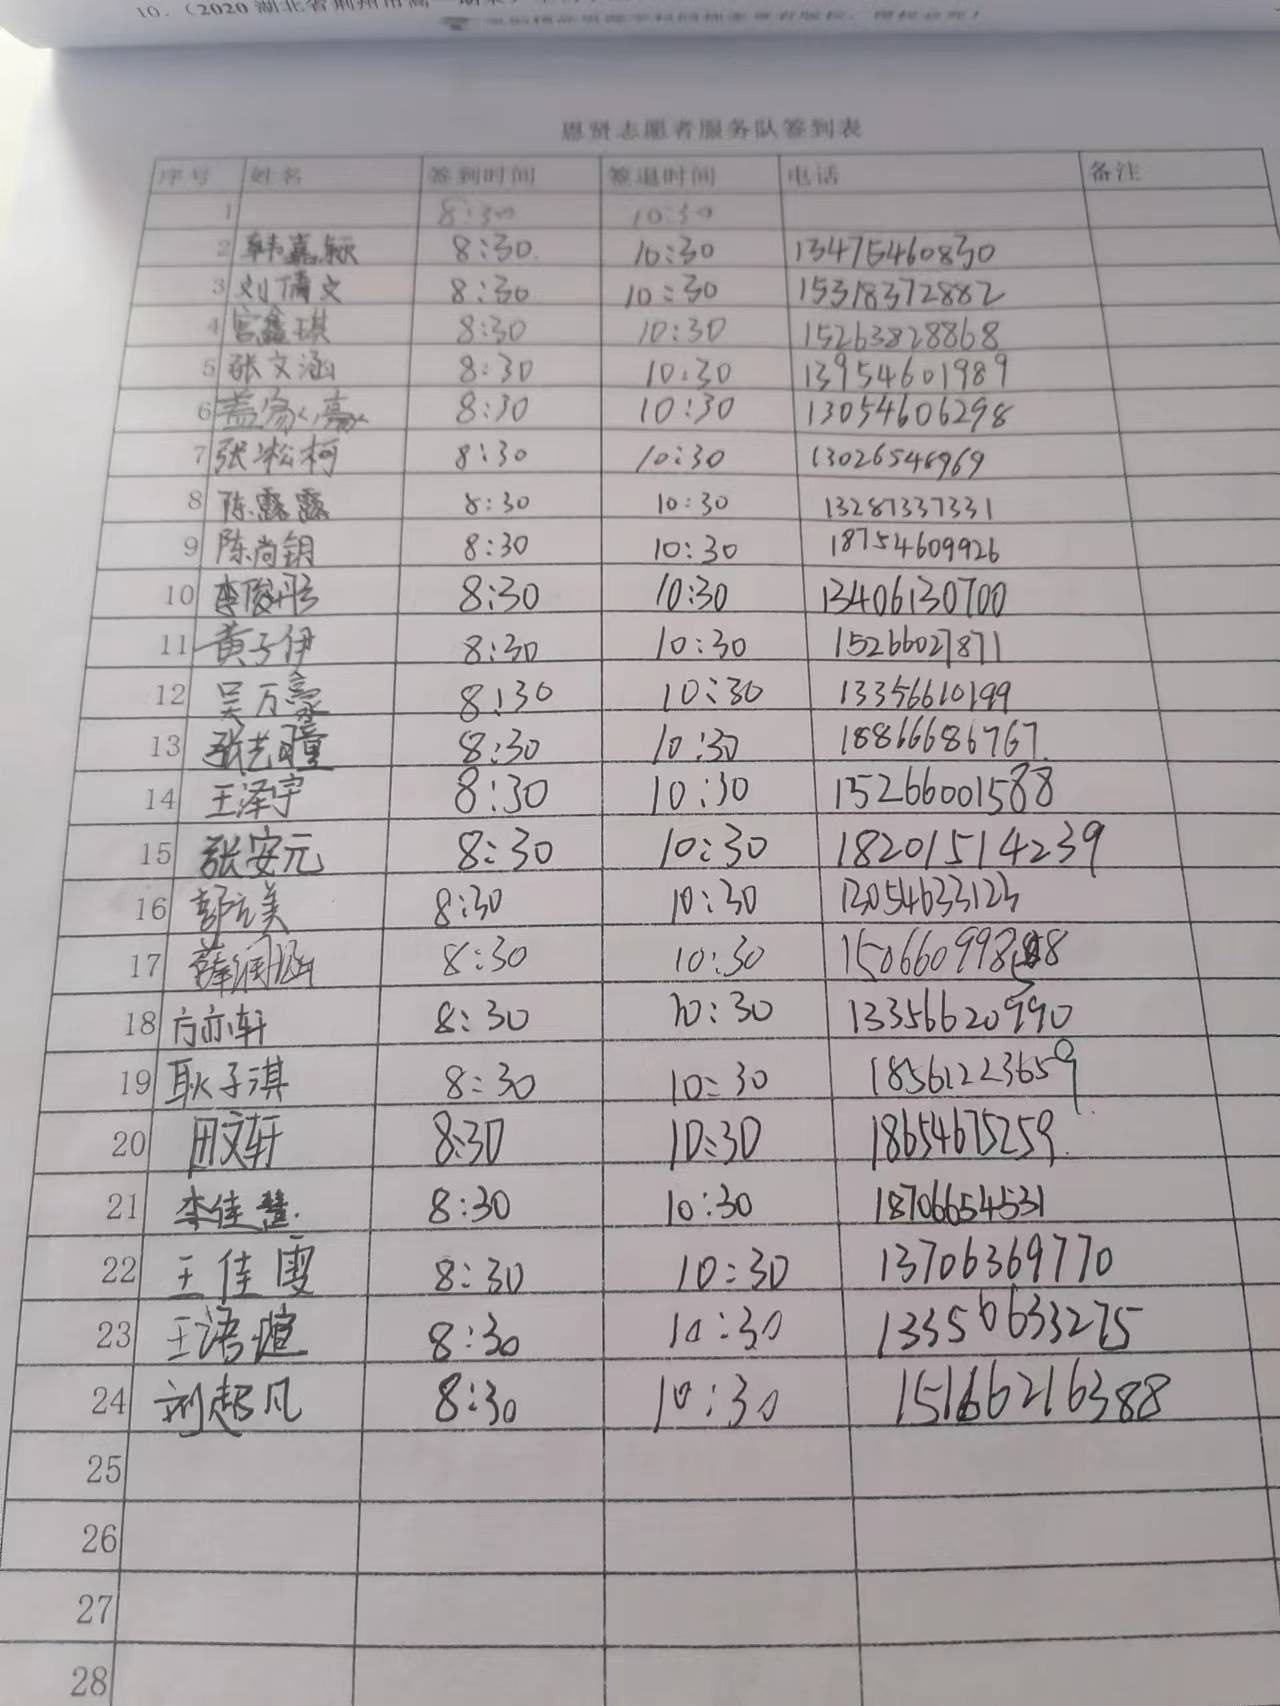 10.（2020 湖北省荆州市高一期末）
恩贤志愿者服务队签到表
序号 姓名 签到时间 签退时间 电话 备注
1 8:30 10:30
2 韩嘉颖 8:30 10:30 13475460830
3 刘倩文 8:30 10:30 15318372882
4 宫鑫琪 8:30 10:30 15263828868
5 张文涵 8:30 10:30 13954601989
6 盖家豪 8:30 10:30 13054606298
7 张凇柯 8:30 10:30 13026546969
8 陈露露 8:30 10:30 13287337331
9 陈尚钥 8:30 10:30 18754609926
10 李俊彤 8:30 10:30 13406130700
11 黄子伊 8:30 10:30 15266027871
12 吴万豪 8:30 10:30 13356610199
13 张艺瞳 8:30 10:30 18866686767
14 王泽宇 8:30 10:30 15266001588
15 张安元 8:30 10:30 18201514239
16 8:30 10:30 13054633123
17 薛润涵 8:30 10:30
18 方亦轩 8:30 10:30 13356620990
19 耿子淇 8:30 10:30 18561223659
20 田文轩 8:30 10:30 18654675259
21 李佳慧 8:30 10:30 18706654531
22 王佳雯 8:30 10:30 13706369770
23 王语萱 8:30 10:30 13350633275
24 刘超凡 8:30 10:30 15166216388
25
26
27
28